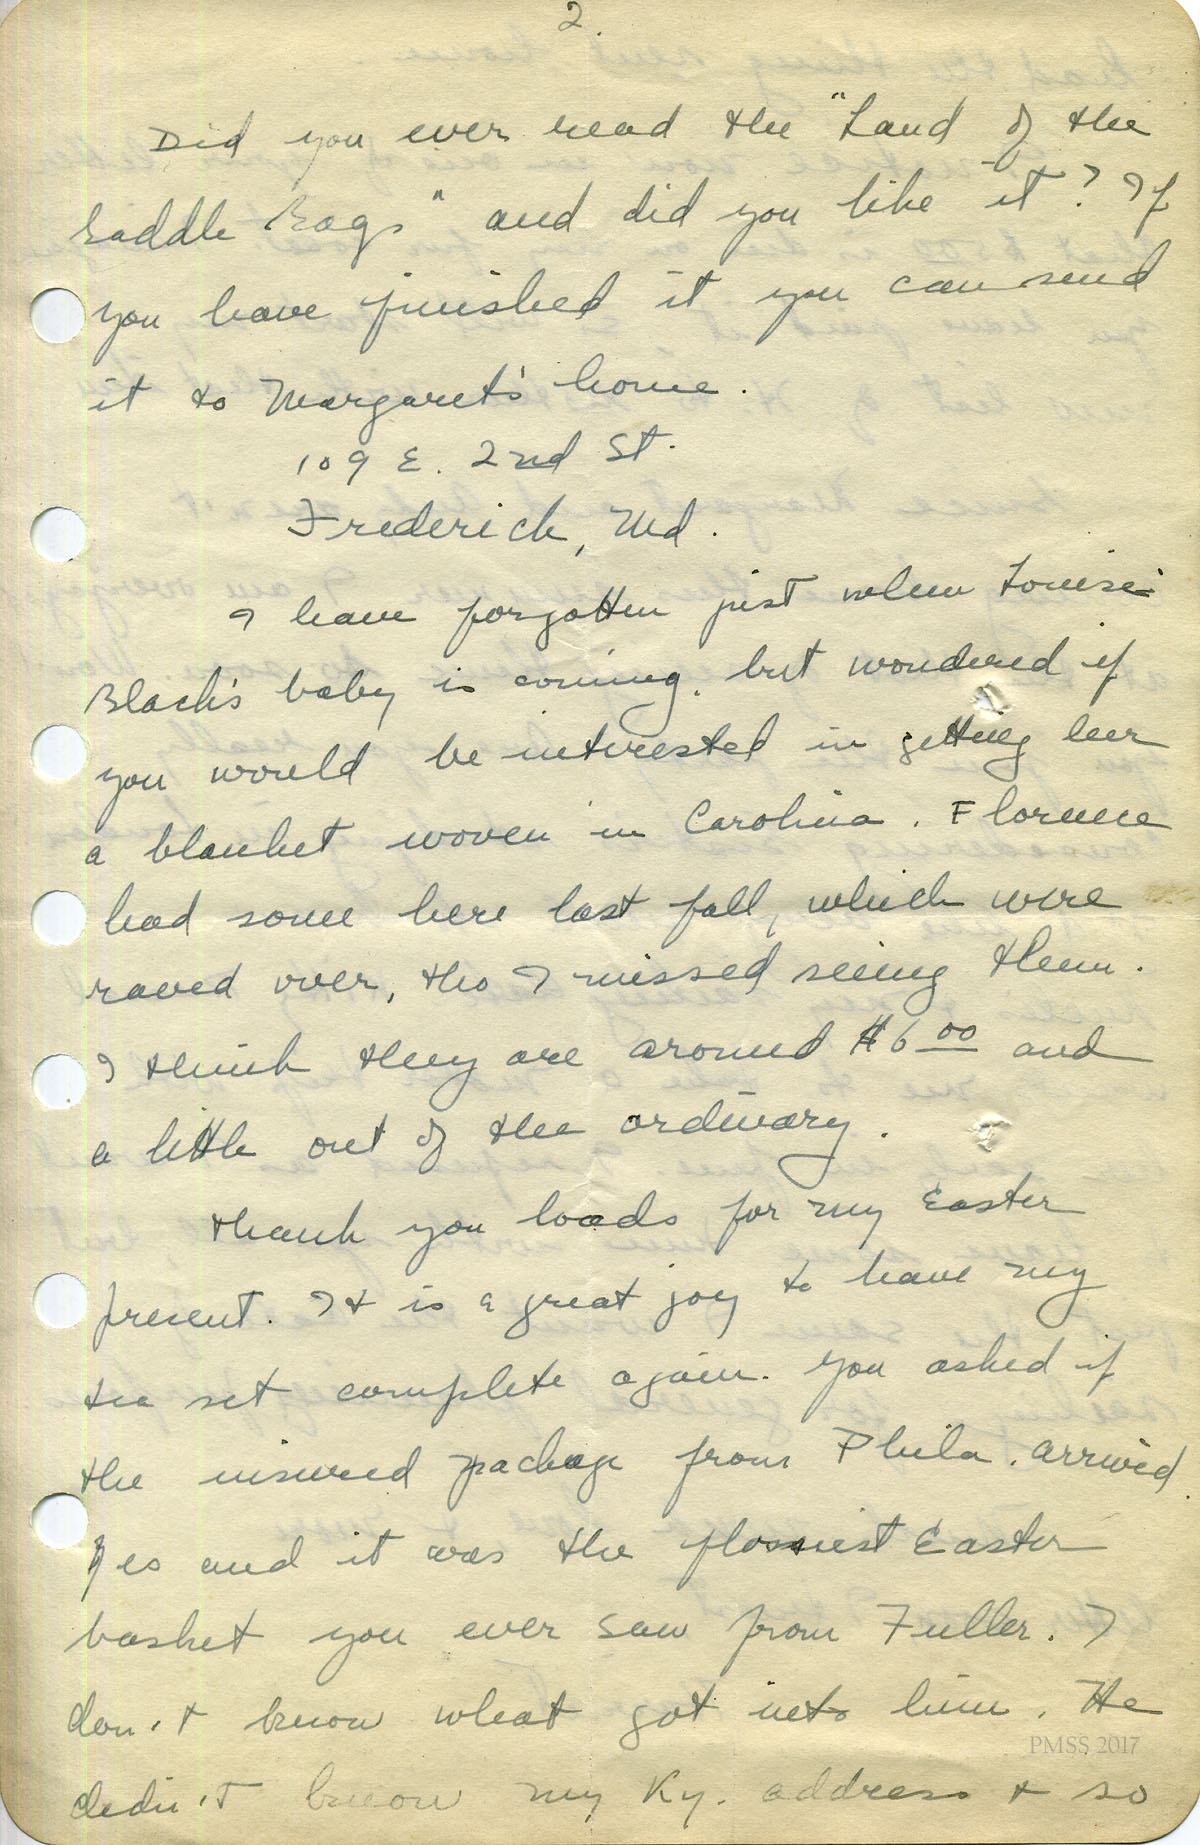 2.
Did you ever read the "Land of the
Saddle Bags" and did you like it? If
you have finished it you can send
it to Margaret's home.
109 E. 2nd St.
Frederick, Md.
I have forgotten just when Louise
Black's baby is coming, but wondered if
you would be interested in getting her
a blanket woven in Carolina. Florence
had some here last fall, which were
raved over, tho I missed seeing them.
I think they are around $6.00 and
a little out of the ordinary.
Thank you loads for my Easter
present. It is a great joy to have my
tea set complete again. You asked if
the insured package from Phila. arrived.
Yes and it was the flossiest Easter
basket you ever saw from Fuller. I
don't know what got into him. He
didn't know my Ky. address & so
PMSS 2017